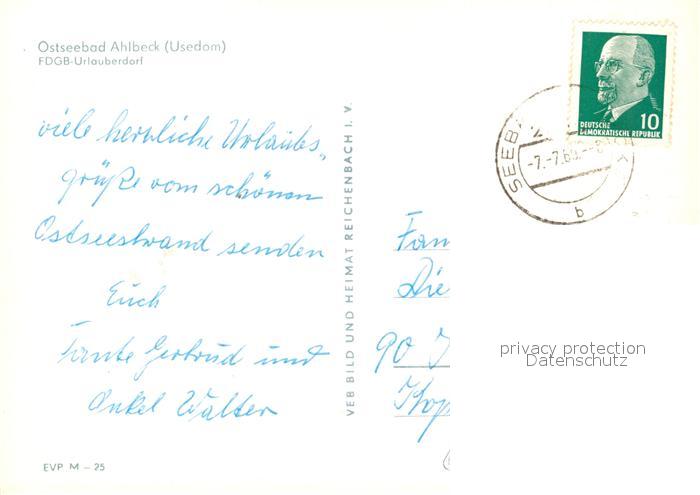 Ostseebad Ahlbeck (Usedom)
FDGB-Urlauberdorf
viele herzliche Urlaubs„
grüße vom schönen
Ostseestrand senden
Euch
Tante Gertrud und
Onkel Walter
EVP M – 25
VEB BILD UND HEIMAT REICHENBACH I. V.
10
DEUTSCHE
DEMOKRATISCHE REPUBLIK
SEEB
-7.-7.69.-8
b
Fam
Die
90
privacy protection
Datenschutz